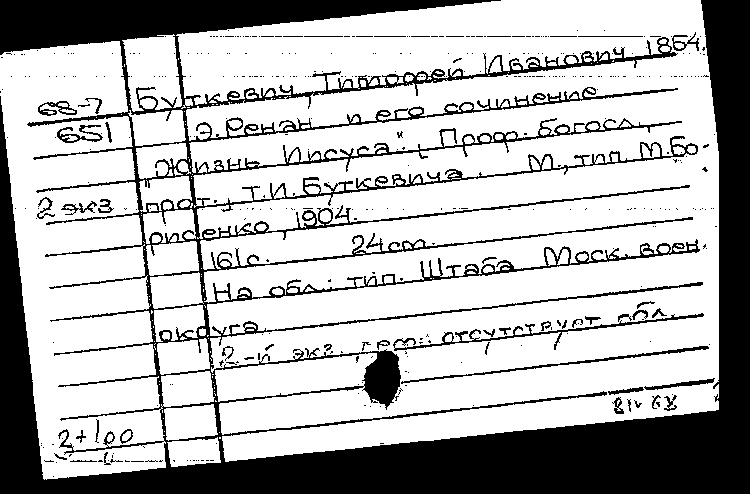 68-7 Буткевич, Тимофей Иванович, 1854.
651 Э. Ренан и его сочинение
"Жизнь Иисуса". [Проф. богосл.,
2 экз прот.] Т.И. Буткевича. М., тип. М.Бо-
рисенко, 1904.
161 с. 24 cm.
На обл.: тип. Штаба Моск. воен.
округа.
2-й экз. отсутствует обл.
2+100